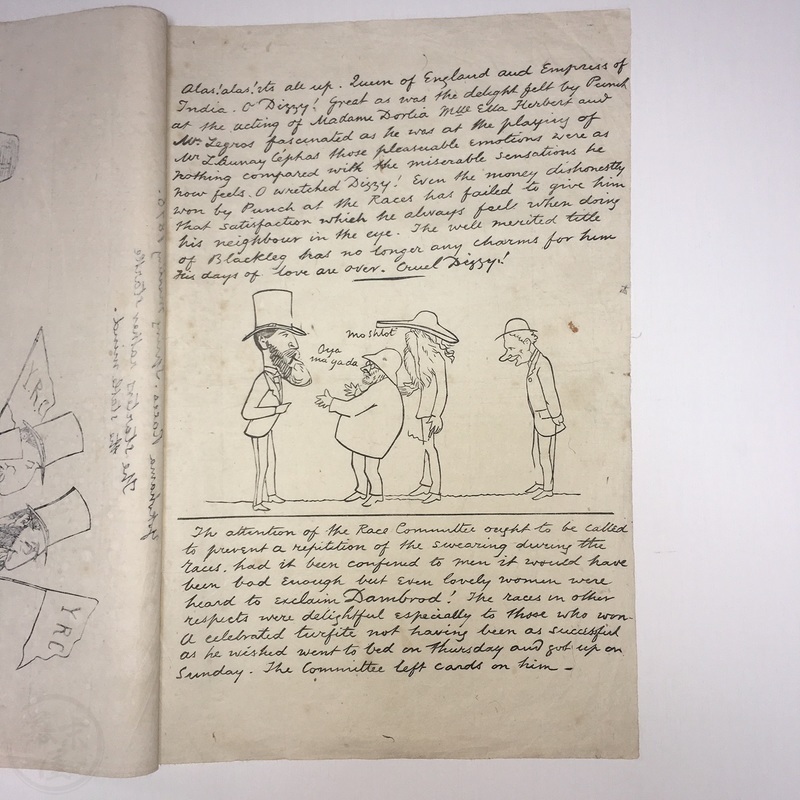 Alas! alas! its all up. Queen of England and Empress of
India. O Dizzy! Great as was the delight felt by Punch
at the acting of Madame Dorlia Mlle Ella Herbert and
Mr. Legros fascinated as he was at the playing of
Mr L. Bunay Céphas those pleasuable emotions were as
nothing compared with the miserable sensations he
now feels. O wretched Dizzy! Even the money dishonestly
won by Punch at the Races has failed to give him
that satisfaction which he always feels when doing
his neighbour in the eye. The well merited title
of Blackleg has no longer any charms for him
His days of love are over. Cruel Dizzy!
moshlot
Oya
mayada
The attention of the Race Committee ought to be called
to prevent a repitition of the swearing during the
races. had it been confined to men it would have
been bad enough but even lovely women were
heard to exclaim Dambrod! The races in other
respects were delightful especially to those who won.
A celebrated turfite not having been as successful
as he wished went to bed on Thursday and got up on
Sunday. The Committee left cards on him _
YRC
YRC